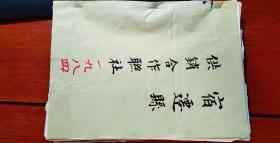 宿遷縣
供銷合作聯社
一九八四